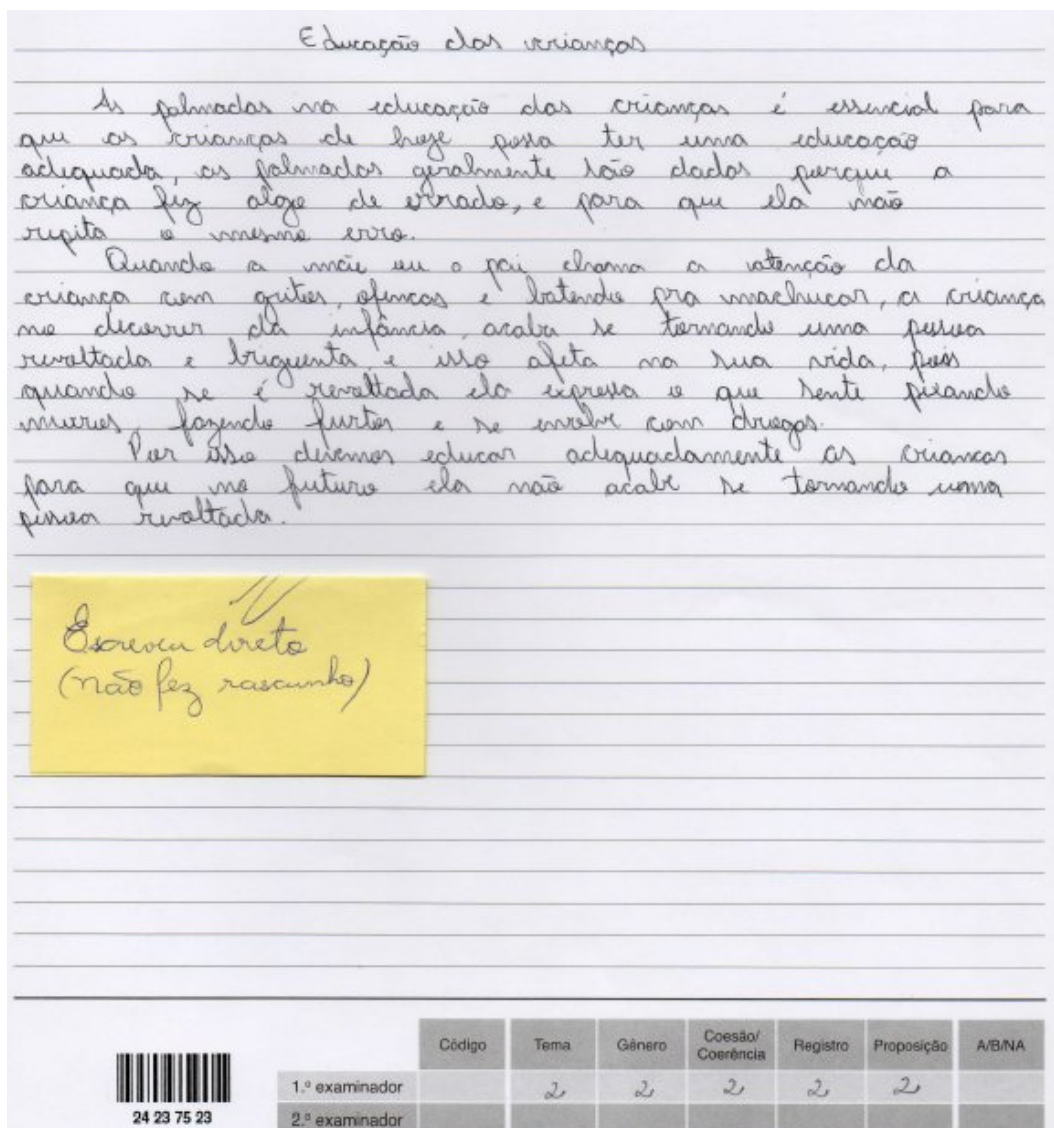 Educação das crianças
As palmadas na educação das crianças é essencial para
que as crianças de hoje possa ter uma educação
adequada, as palmadas geralmente são dadas porque a
criança fez algo de errado, e para que ela não
repita o mesmo erro.
Quando a mãe ou o pai chama a atenção da
criança com gritos, ofencas e batendo pra machucar, a criança
no decorrer da infância, acaba se tornando uma pessoa
revoltada e briguenta e isso afeta na sua vida, pois
quando se é revoltada ela expressa o que sente pixando
muros, fazendo furtos e se envolve com drogas.
Por isso devemos educar adequadamente as criancas
para que no futuro ela não acabe se tornando uma
pessoa revoltada.
Escreveu direto
(não fez rascunho)
Código Tema Gênero Coesão/Coerência Registro Proposição A/B/NA
1.º examinador 2 2 2 2 2
24 23 75 23 2.º examinador